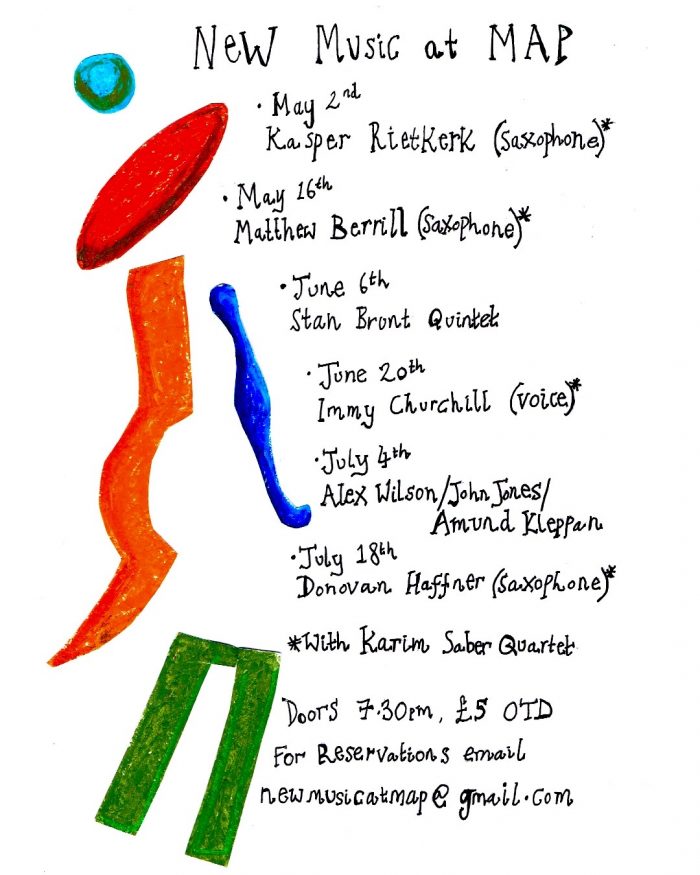 New Music at MAP
• May 2nd
Kasper Rietkerk (saxophone)*
• May 16th
Matthew Berrill (saxophone)*
• June 6th
Stan Brunt Quintet
• June 20th
Immy Churchill (voice)*
• July 4th
Alex Wilson/John Jones/
Amund Kleppan
• July 18th
Donovan Haffner (saxophone)*
*With Karim Saber Quartet
Doors 7.30pm, £5 OTD
For Reservations email
newmusicatmap@gmail.com